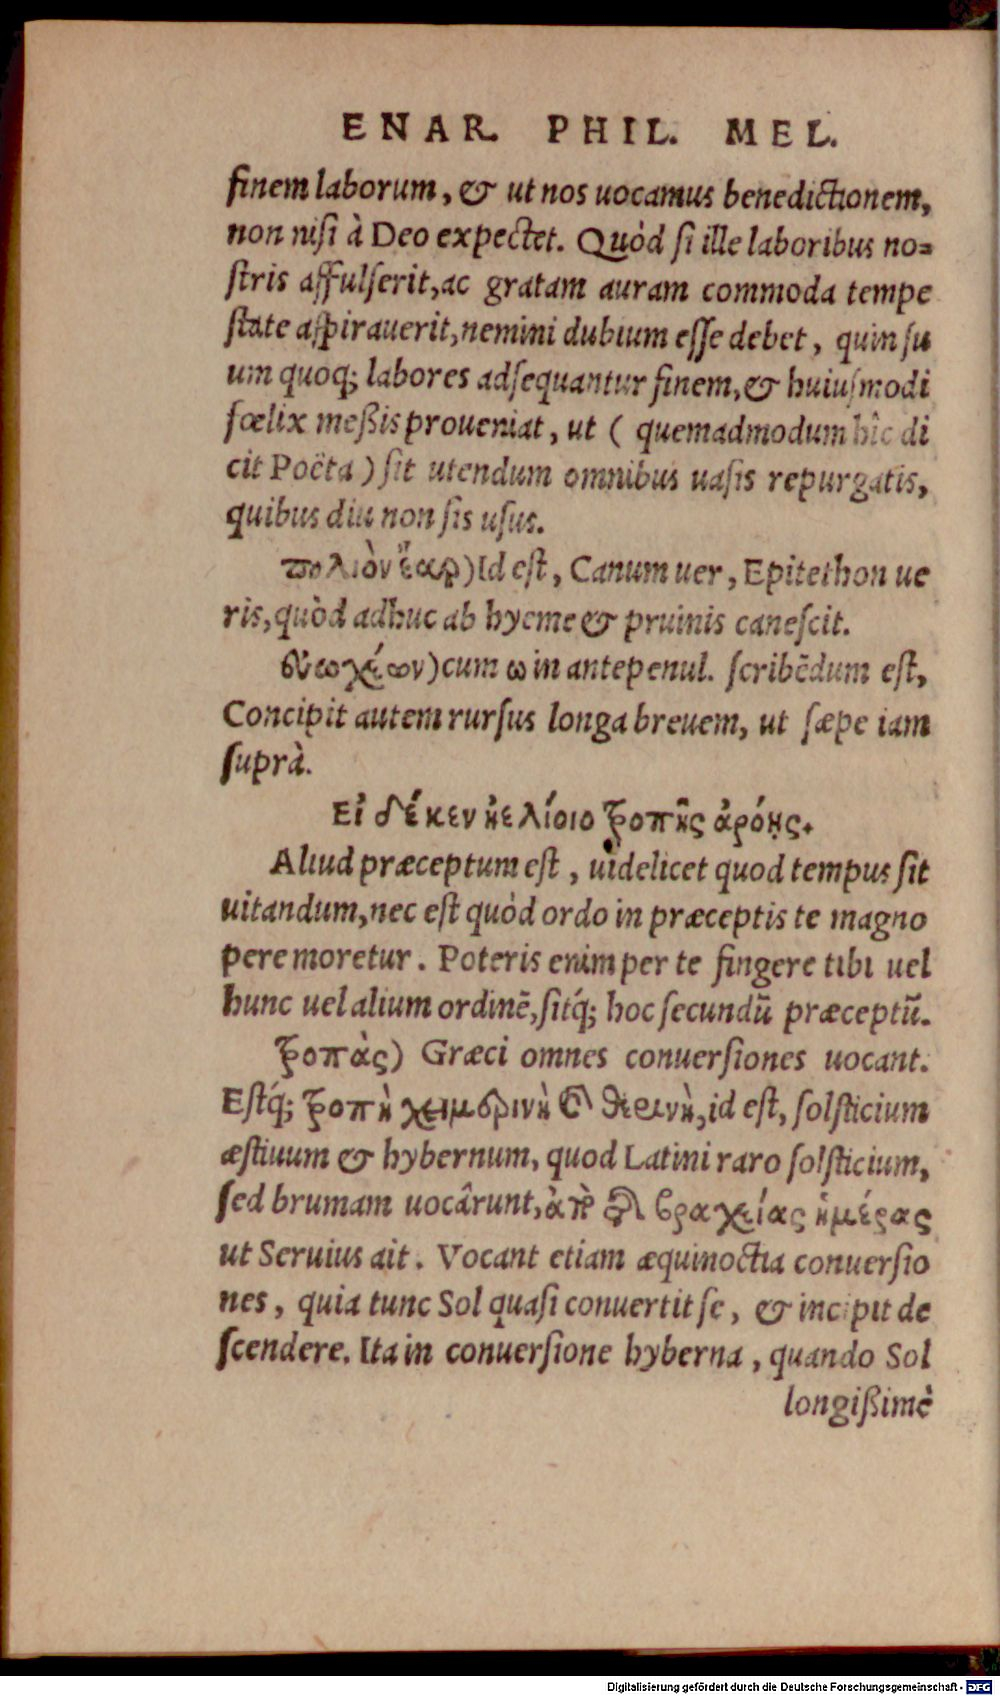 ENAR. PHIL. MEL.
finem laborum, & ut nos uocamus benedictionem,
non nisi à Deo expectet. Quòd si ille laboribus no=
stris affulserit, ac gratam auram commoda tempe
state aspirauerit, nemini dubium esse debet, quin su
um quoq; labores adsequantur finem, & huiusmodi
fœlix meßis proueniat, ut ( quemadmodum hîc di
cit Poëta ) sit utendum omnibus uasis repurgatis,
quibus diu non sis usus.
πολιὸν ἔαρ) Id est, Canum uer, Epitethon ue
ris, quòd adhuc ab hyeme & pruinis canescit.
εὐωχέων) cum ω in antepenul. scribẽdum est,
Concipit autem rursus longa breuem, ut sæpe iam
suprà.
Εἰ δέ κεν ἠελίοιο τροπῆς ἀρόῃς.
Aliud præceptum est, uidelicet quod tempus sit
uitandum, nec est quòd ordo in præceptis te magno
pere moretur. Poteris enim per te fingere tibi uel
hunc uel alium ordinẽ, sitq́; hoc secundũ præceptũ.
τροπὰς) Græci omnes conuersiones uocant.
Estq́; τροπὴ χειμερινὴ καὶ θερινὴ, id est, solsticium
æstiuum & hybernum, quod Latini raro solsticium,
sed brumam uocârunt, ἀπὸ τῆς βραχείας ἡμέρας
ut Seruius ait. Vocant etiam æquinoctia conuersio
nes, quia tunc Sol quasi conuertit se, & incipit de
scendere. Ita in conuersione hyberna, quando Sol
longißimè
Digitalisierung gefördert durch die Deutsche Forschungsgemeinschaft - DFG